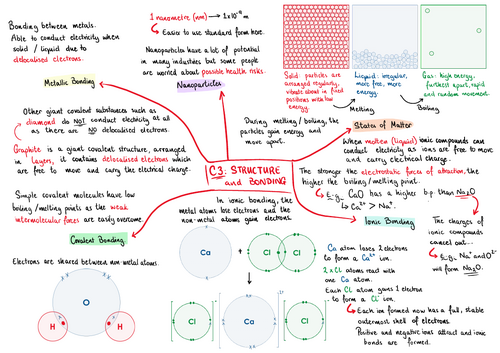 Bonding between metals.
Able to conduct electricity when
solid / liquid due to
delocalised electrons.
Metallic Bonding
1 nanometre (nm) → 1×10⁻⁹ m
Easier to use standard form here.
Nanoparticles have a lot of potential
in many industries but some people
are worried about possible health risks.
Nanoparticles
Solid: particles are
arranged regularly,
vibrate about in fixed
positions with low
energy.
Liquid: irregular,
more free, more
energy.
Gas: high energy,
furthest apart, rapid
and random movement.
Melting
Boiling
During melting / boiling, the
particles gain energy and
move apart.
States of Matter
Other giant covalent substances such as
diamond do NOT conduct electricity at all
as there are NO delocalised electrons.
Graphite is a giant covalent structure, arranged
in layers, it contains delocalised electrons which
are free to move and carry the electrical charge.
C3: STRUCTURE
and BONDING
When molten (liquid) ionic compounds can
conduct electricity as ions are free to move
and carry electrical charge.
The stronger the electrostatic forces of attraction, the
higher the boiling/melting point.
E.g. CaO has a higher b.p. than Na₂O
Ca²⁺ > Na⁺.
Simple covalent molecules have low
boiling/melting points as the weak
intermolecular forces are easily overcome.
Covalent Bonding
In ionic bonding, the
metal atoms lose electrons and the
non-metal atoms gain electrons.
Ionic Bonding
The charges of
ionic compounds
cancel out...
E.g. Na⁺ and O²⁻
will form Na₂O.
Electrons are shared between non-metal atoms.
O
H
H
Ca
+
Cl
Cl
Ca atom loses 2 electrons
to form a Ca²⁺ ion.
2 × Cl atoms react with
one Ca atom.
Each Cl atom gains 1 electron
to form a Cl⁻ ion.
Cl
Ca
2+
Cl
Each ion formed now has a full, stable
outermost shell of electrons.
Positive and negative ions attract and ionic
bonds are formed.